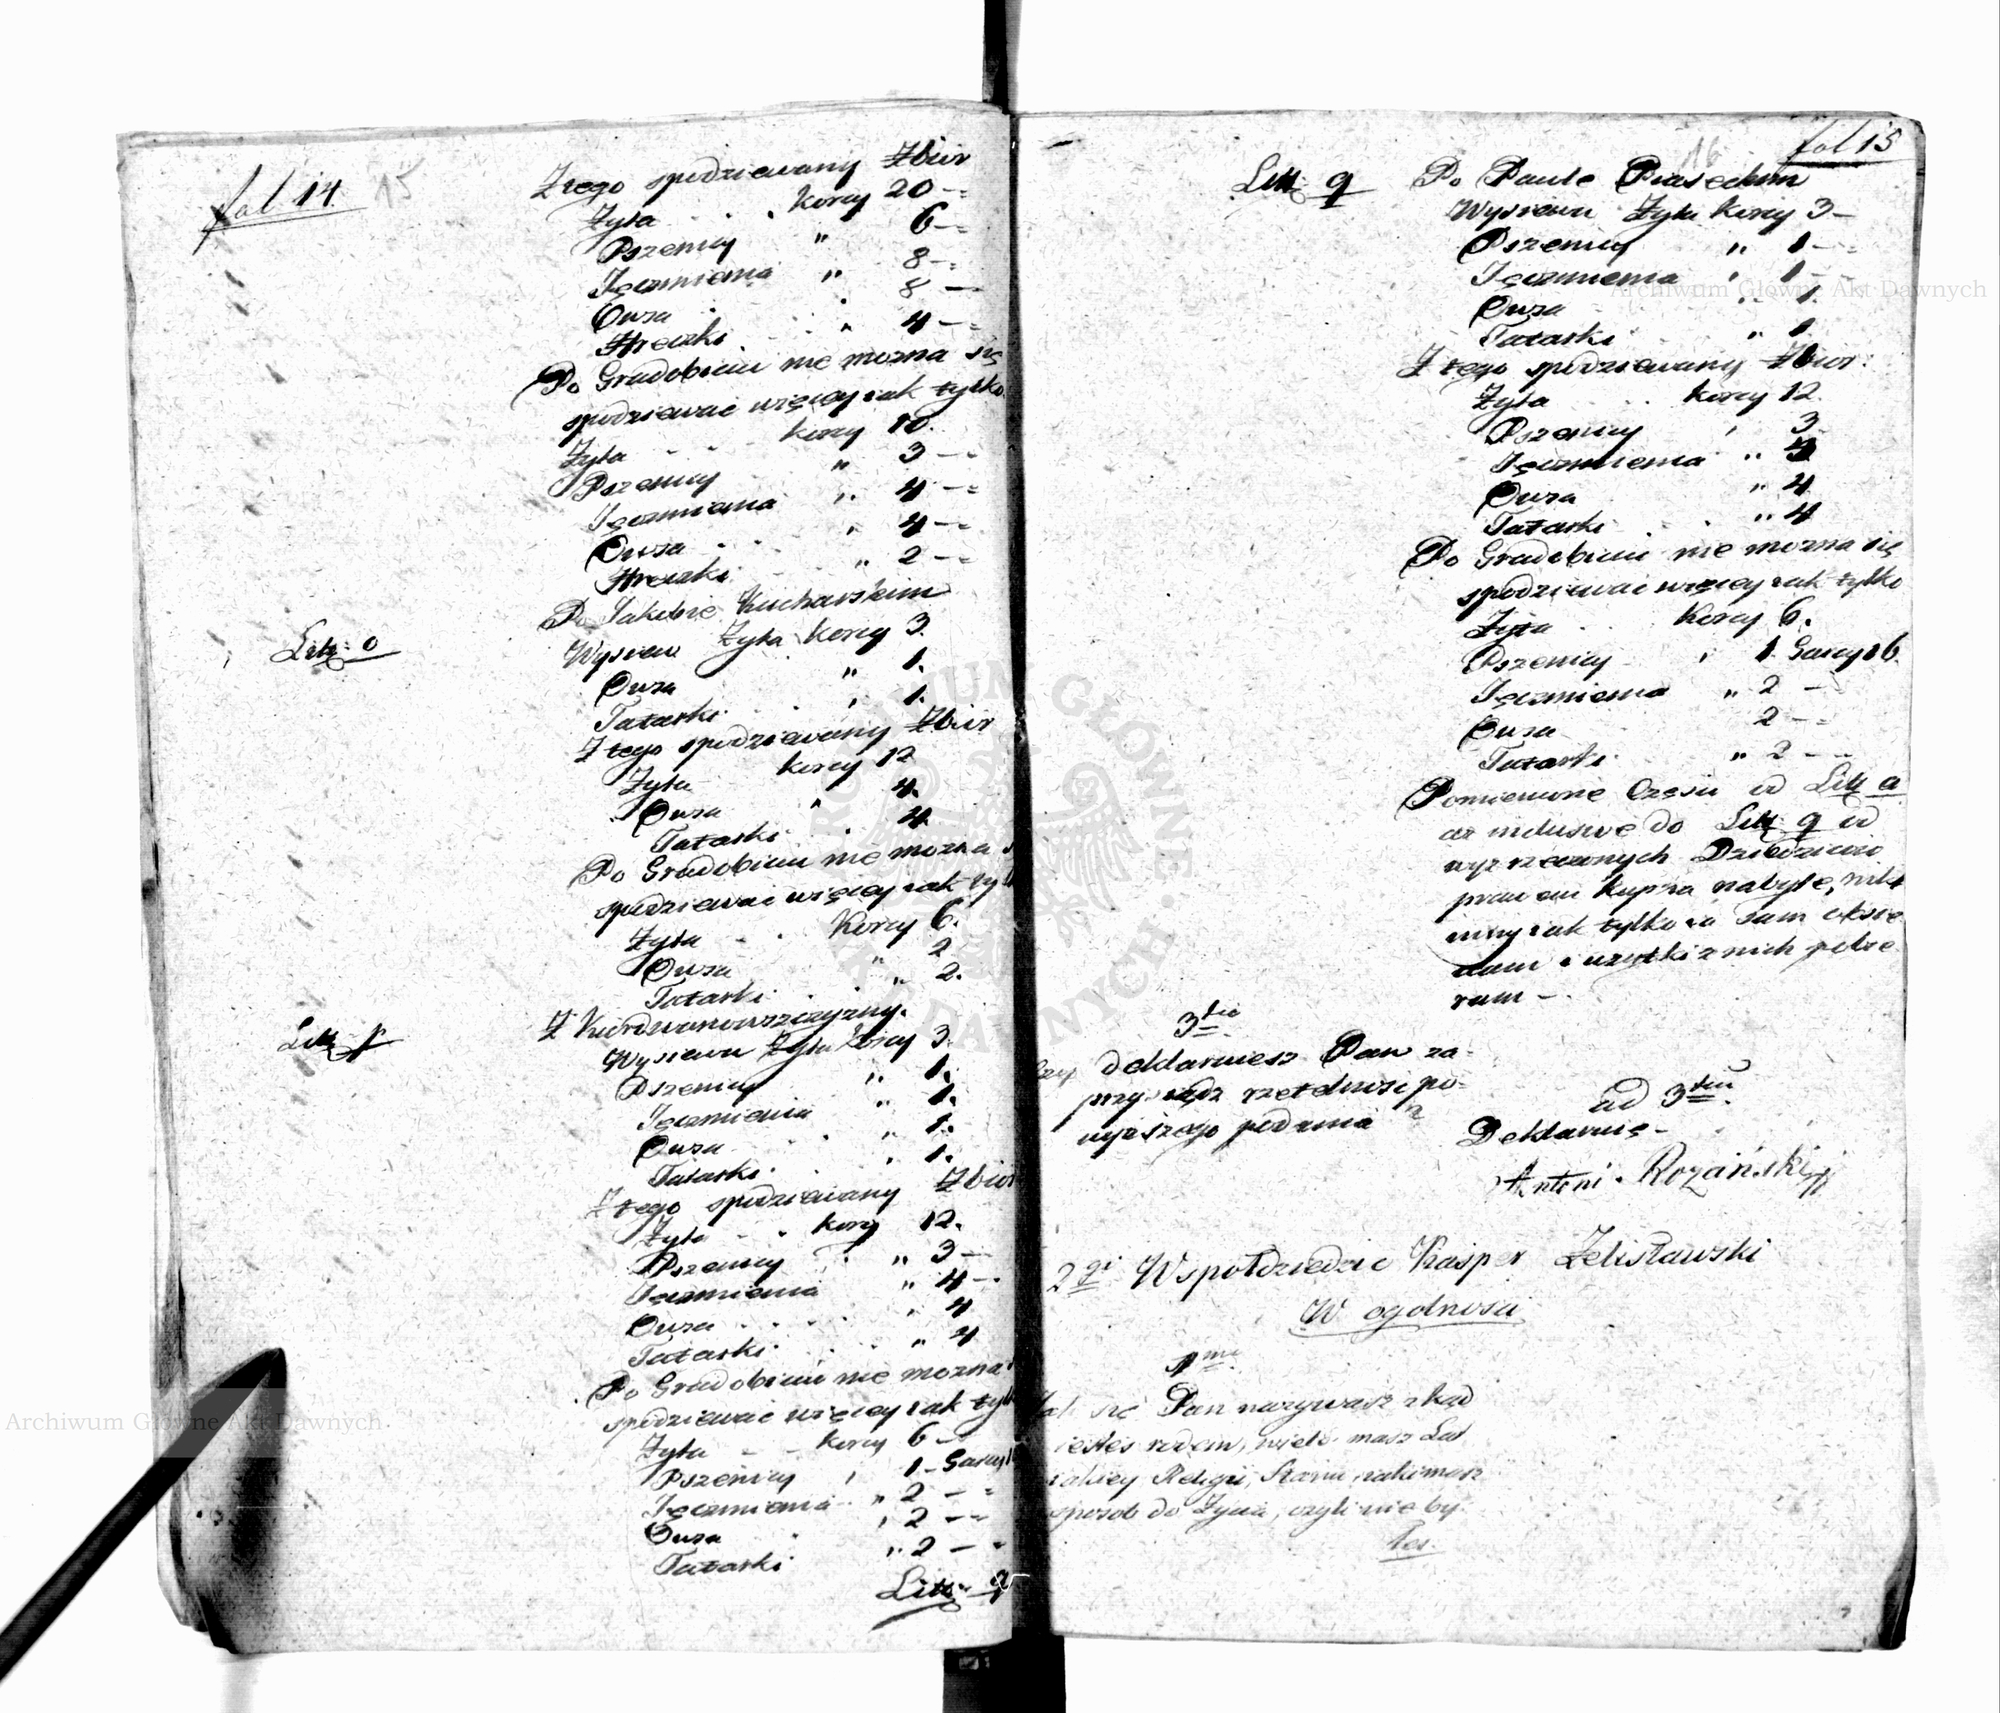 fol 14.
15
Z tego spodziewany Zbior
Żyta . . . korcy 20 -
Pszenicy " 6 -
Jęczmienia " 8 -
Owsa . " 8 -
Hreczki " 4 -
Po Gradobiciu nie mozna się
spodziewac więcey iak tylko
Żyta - - korcy 10.
Pszenicy " 3 -
Jęczmienia " 4 -
Owsa . . " 4 -
Hreczki " 2 -
Litt: o
Po Jakubie Kucharskim
Wysiew Żyta korcy 3.
Owsa " 1.
Tatarki . " 1.
Z tego spodziewany Zbior
Żyta korcy 12
Owsa " 4.
Tatarki . 4.
Po Gradobiciu nie mozna
spodziewac więcey iak tyl
Żyta . . Korcy 6.
Owsa " 2
Tatarki . . " 2.
Litt: p
Z Kurdwanowszczyzny.
Wysiewu Żyta korcy 3.
Pszenicy " 1.
Jęczmienia " 1.
Owsa . . " 1.
Tatarki . . " 1.
Z tego spodziewany Zbior
Żyta - . korcy 12.
Pszenicy . " 3 -
Jęczmienia " 4 -
Owsa . . . . " 4
Tatarki . . . " 4
Po Gradobiciu nie mozna
spodziewac więcey iak tyl
Żyta - - korcy 6 -
Pszenicy " 1 - Garcy
Jęczmienia " 2 -
Owsa " 2 -
Tatarki " 2 -
Litt: q
fol 15
16
Litt: q Po Pawle Piaseckim
Wysiewu Żyta korcy 3 -
Pszenicy " 1 -
Jęczmienia " 1 -
Owsa " 1.
Tatarki " 1.
Z tego spodziewany Zbior:
Żyta . . korcy 12.
Pszenicy " 3
Jęczmienia "
Owsa " 4
Tatarki . . " 4
Po Gradobiciu nie mozna się
spodziewac więcey iak tylko
Żyta . . Korcy 6.
Pszenicy " 1 Garcy 16
Jęczmienia " 2 -
Owsa 2 -
Tatarki " 2 -
Pomienione Części od Litt a
az inclusive do Litt: q od
wyzrzeczonych Dziedzicow
prawem kupna nabyte, nikt
inny iak tylko ia sam
i uzytki z nich pobie
ram -
3tio
Czy deklaruiesz Pan za-
przysiądz rzetelnosc po-
wyzszego podania?
ad 3tium
Deklaruię -
Antoni Rozański
2gi Wspołdziedzic Kasper Zelisławski
W ogolnosci
1mo
Jak się Pan nazywasz zkąd
iestes rodem, wiele masz Lat
iakiey Religii, Stanu, iaki masz
sposob do Życia, czyli nie by
łes.
Archiwum Główne Akt Dawnych
Archiwum Główne Akt Dawnych
ARCHIWUM GŁÓWNE AKT DAWNYCH